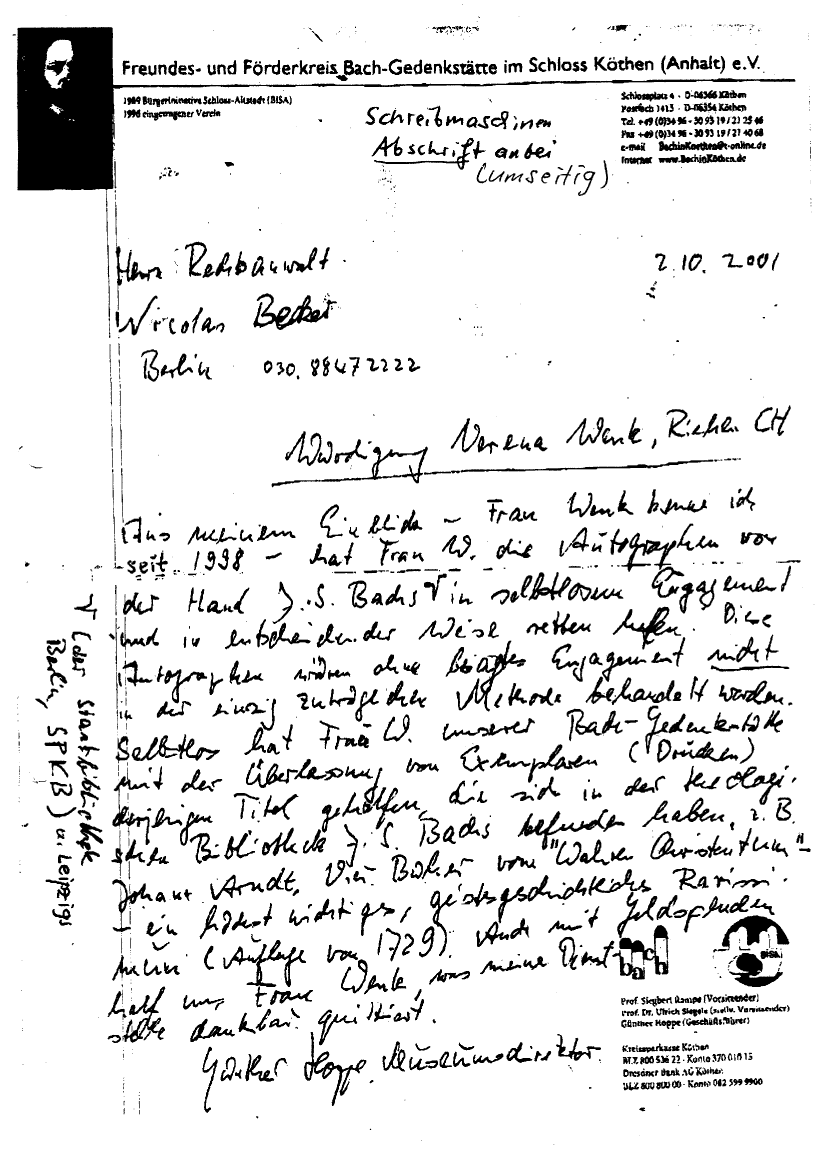 Freundes- und Förderkreis Bach-Gedenkstätte im Schloss Köthen (Anhalt) e.V.
1989 Bürgerinitiative Schloss-Altstadt (BISA)
1996 eingetragener Verein
Schlossplatz 4 · D-06366 Köthen
Postfach 1415 · D-06354 Köthen
Tel. +49 (0)34 96 - 30 93 19 / 21 25 46
Fax +49 (0)34 96 - 30 93 19 / 21 40 68
e-mail BachinKoethen@t-online.de
Internet www.BachinKöthen.de
Schreibmaschinen
Abschrift anbei
(umseitig)
Herrn Rechtsanwalt
2.10. 2001
Nicolas Becker
Berlin 030. 88472222
Würdigung Verena Wenk, Riehen CH
Aus meinem Einblick – Frau Wenk kenne ich
seit 1998 – hat Frau W. die Autographen von
der Hand J.S. Bachs in selbstlosem Engagement
und in entscheidender Weise retten helfen. Diese
Autographen wären ohne besagtes Engagement nicht
in der einzig zuträglichen Methode behandelt worden.
Selbstlos hat Frau W. unserer Bach-Gedenkstätte
mit der Überlassung von Exemplaren (Drucken)
derjenigen Titel geholfen, die sich in der theologi-
schen Bibliothek J. S. Bachs befunden haben, z. B.
Johann Arndt, Vier Bücher vom "Wahren Christentum" –
– ein höchst wichtiges, geistesgeschichtliches Rarissi-
mum (Auflage von 1729). Auch mit Geldspenden
half uns Frau Wenk, was meine Dienst-
stelle dankbar quittiert.
Günther Hoppe, Museumsdirektor
(der Staatsbibliothek
Berlin, SPKB) u. Leipzigs
bach
BISA
Prof. Siegbert Rampe (Vorsitzender)
Prof. Dr. Ulrich Siegele (stellv. Vorsitzender)
Günther Hoppe (Geschäftsführer)
Kreissparkasse Köthen
BLZ 800 536 22 · Konto 370 010 15
Dresdner Bank AG Köthen
BLZ 800 800 00 · Konto 082 599 9900